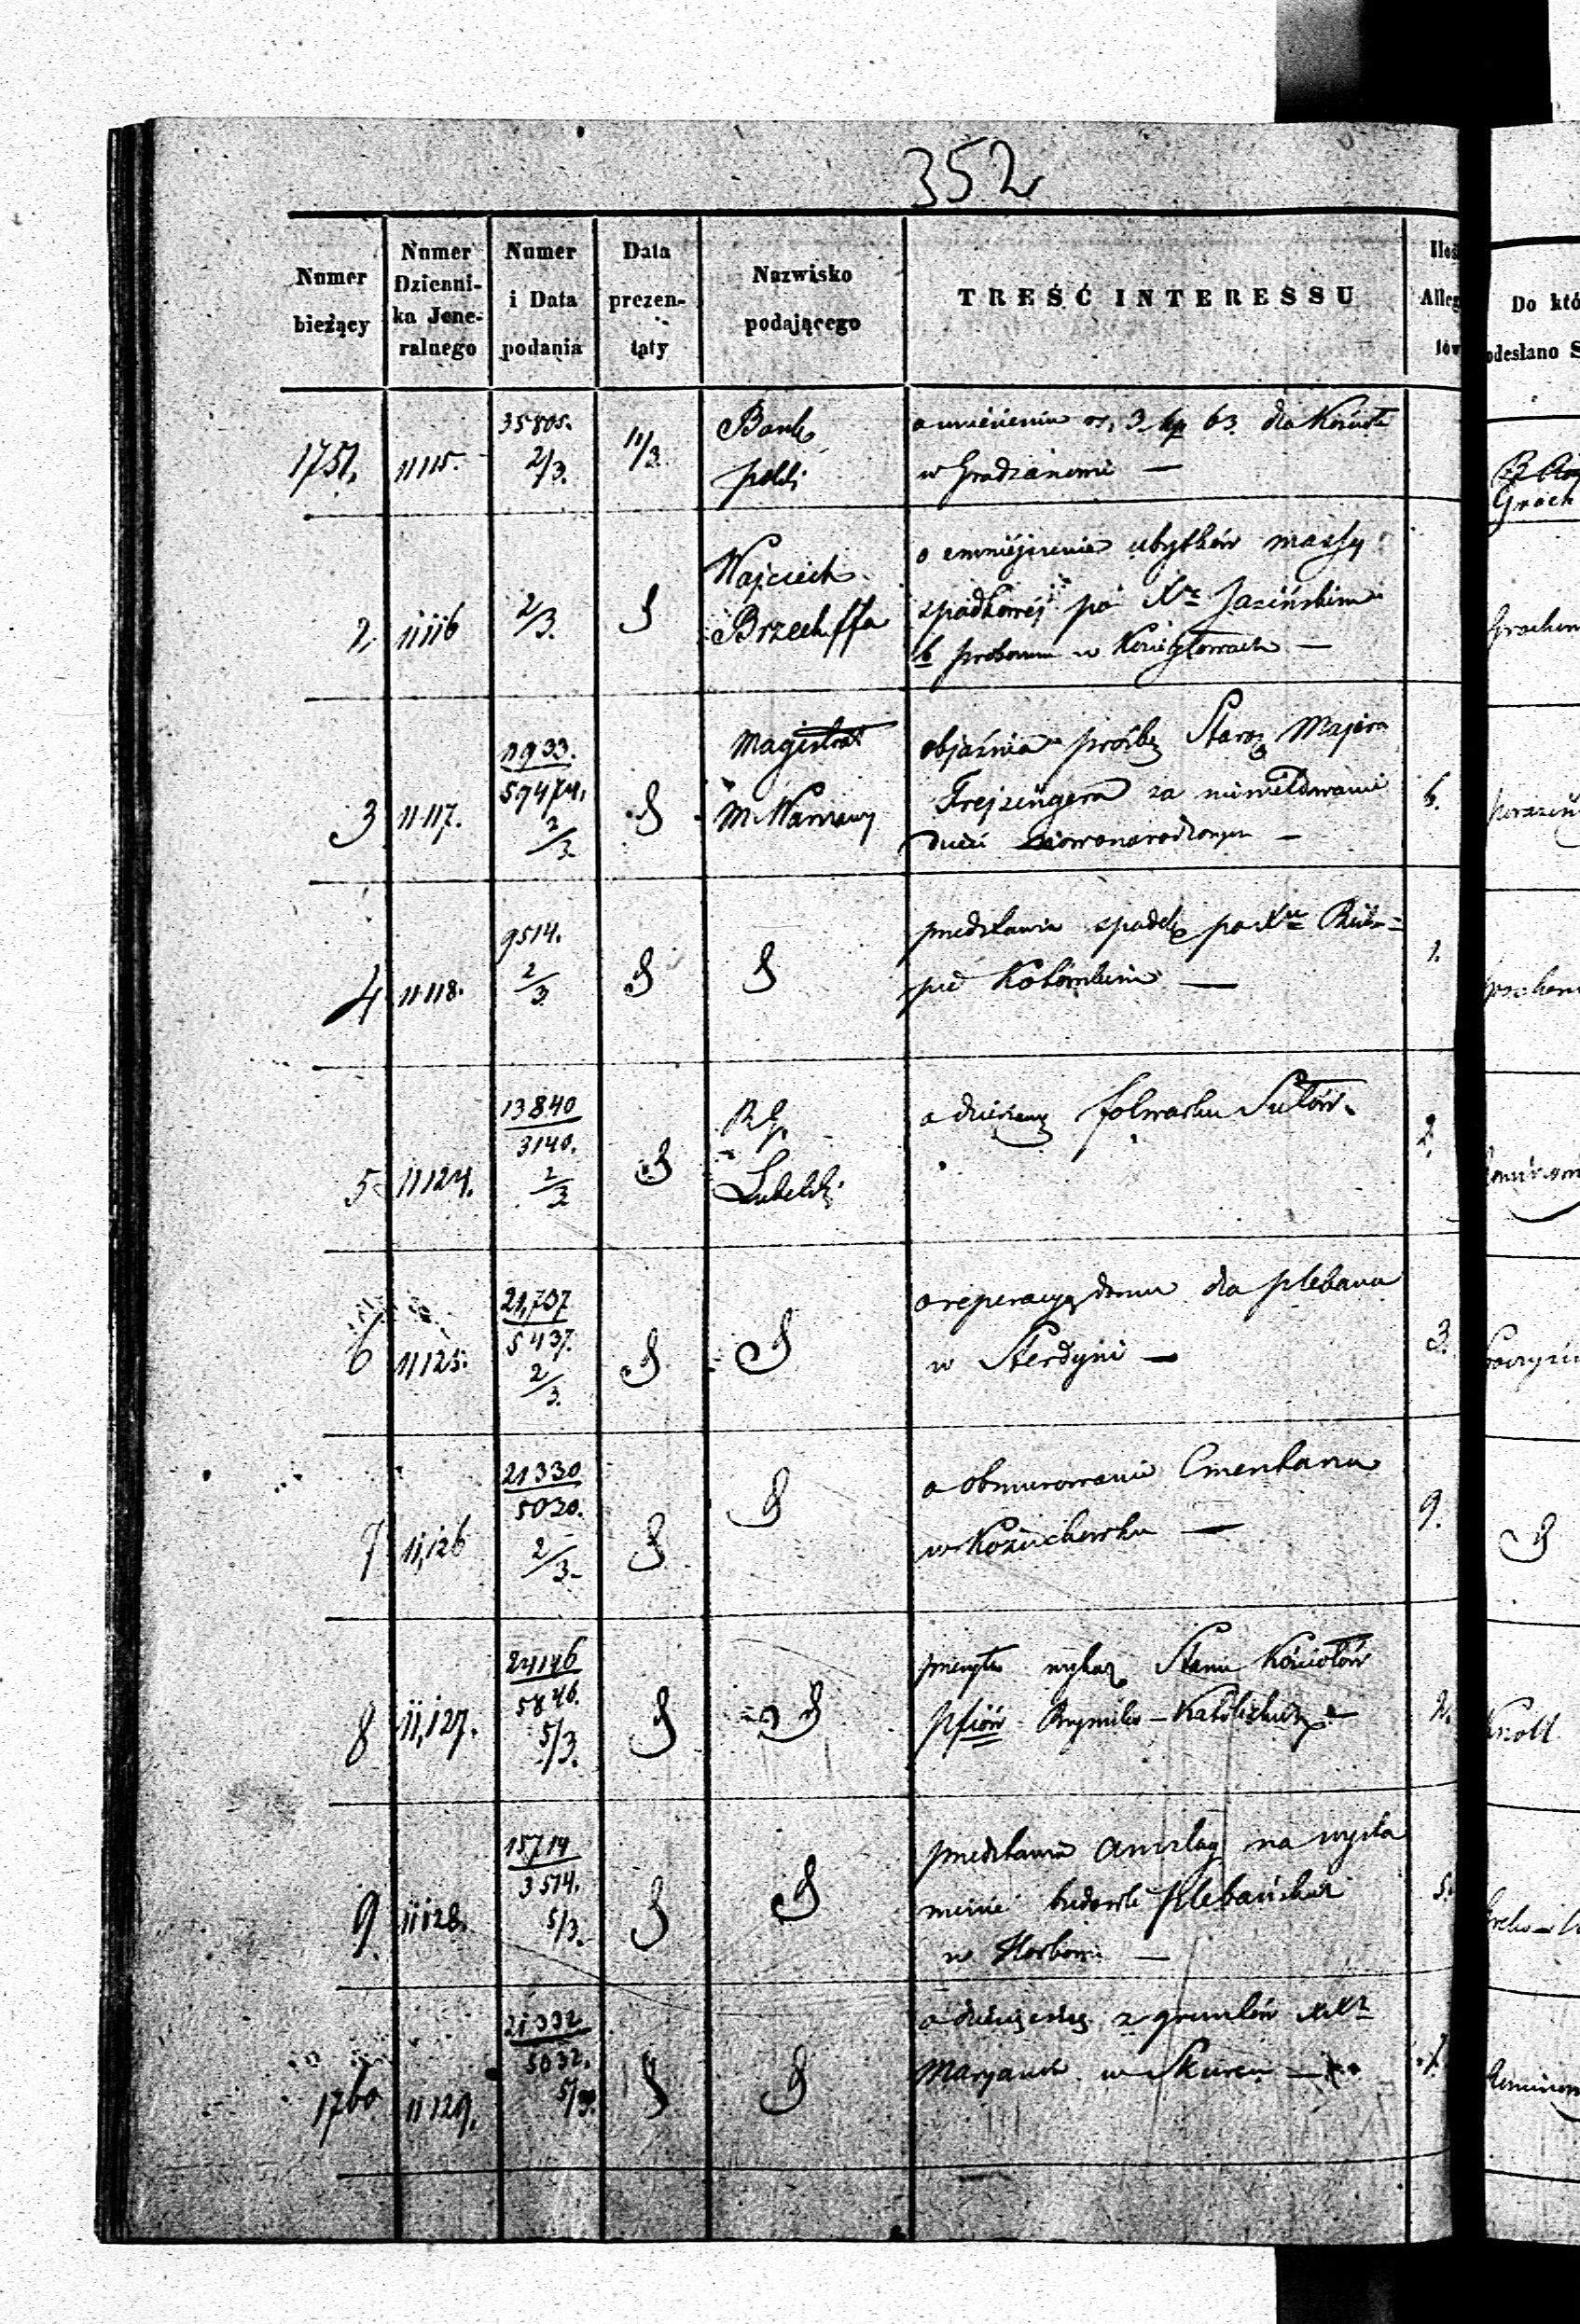 352
Numer bieżący
Numer Dzienni- ka Jene- ralnego
Numer i Data podania
Data prezen- taty
Nazwisko podającego
TREŚĆ INTERESSU
Do któ
odesłano S
1751. 11115. 35805. 2/3. 11/3. Bank
polski
w Gradzanowie —
Groch
2, 11116 2/3. Wojciech
Brzechffa
o zmniejszenie ubytków massy
spadkowej po Xdz Jasińskim
w Koziegłowach —
3 11117. 59474. 2/3 Magistrat
M. Warszawy
objaśnia prośbę Staroz Majera
Frejzyngera za niemeldowanie
dzieci nowonarodzonych —
6.
4 11118. 9514. 2/3
przedstawia spadek po
1.
5 11124. 13840 3140. 2/3 R. G.
Lubelski
o dzierżawę folwarku Sułów.
2.
6 11125. 21,737 5437. 2/3.
o reperacyą domu dla plebana
w Sterdyni —
3.
7 11,126 21330 5030. 2/3.
o obmurowanie Cmentarza
w Kożuchówku —
9.
8 11,127. 24146 5846. 5/3.
przesyła wykaz Stanu Kościołów
Rzymsko-Katolickich —
Knoll
9. 11128. 15714 3514. 5/3.
przedstawia anszlag na wysta
wienie budowli plebańskich
w Horbowie —
5.
1760 11129. 21332 5032. 5/3.
o dziesięcinę z gruntów
Maryanek w Skurcu —